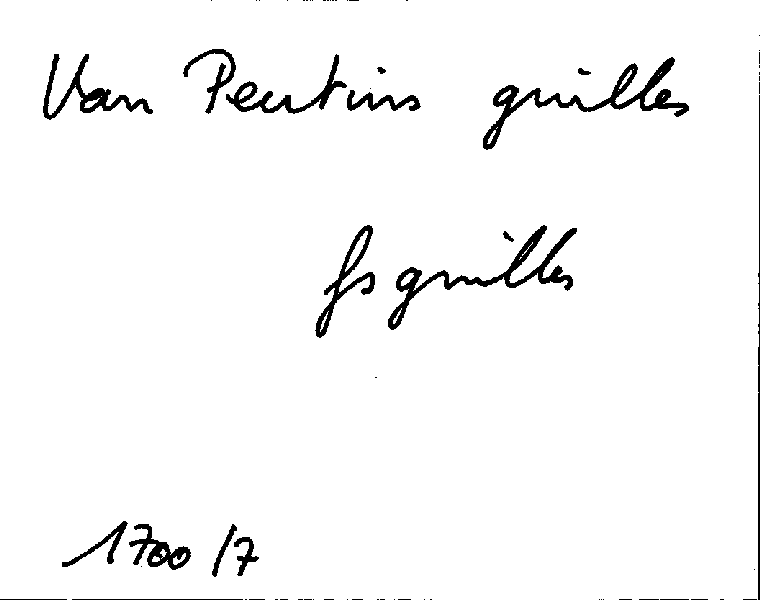 Van Peutins guilles
fs guilles
1700/7